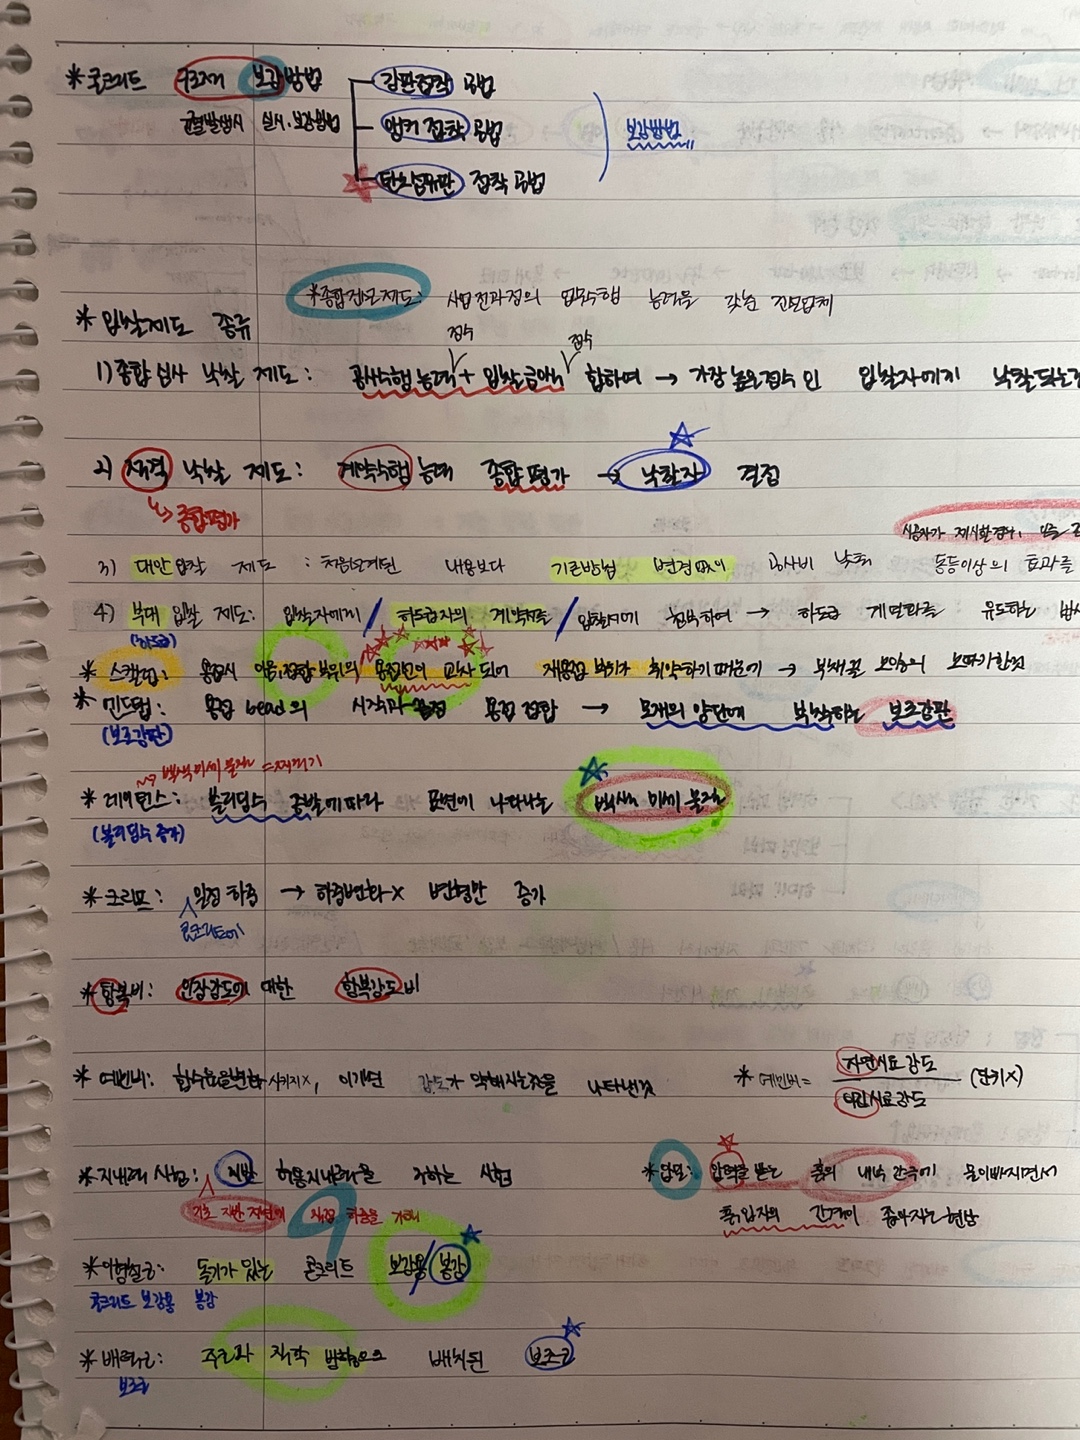 * 콘크리트 구조체 보강방법
강판접착 공법
균열발생시 실시. 보강방법
앵커 접착 공법
보강방법
탄소섬유판 접착 공법
*종합건설제도: 사업전과정의 업무수행 능력을 갖춘 건설업체
* 입찰제도 종류
점수 점수
1) 종합심사 낙찰 제도: 공사수행능력 + 입찰금액 합하여 → 가장 높은점수인 입찰자에게 낙찰되는
2) 적격 낙찰 제도: 계약수행능력 종합평가 → 낙찰자 결정
↳ 종합평가
시공자가 제시할경우,
3) 대안입찰 제도 : 처음설계된 내용보다 기존방법 변경없이 공사비 낮춰 동등이상의 효과를
4) 부대 입찰 제도: 입찰자에게 / 하도급자의 계약서를 / 입찰서에 첨부하여 → 하도급 계열화를 유도하는
(하도급)
* 스캘럽: 용접시 이음,접합 부위의 용접선이 교차되어 재용접 부위가 취약하기때문에 → 부채꼴 모양의 모따기한것
* 엔드탭: 용접 bead의 시작과 끝점 용접 접합 → 모재의 양단에 부착하는 보조강판
(보조강판)
백색미세 물질 = 찌꺼기
* 레이턴스: 블리딩수 증발에따라 표면에 나타나는 백색 미세 물질
(블리딩수 증가)
* 크리프: 일정하중 → 하중변화X 변형만 증가
콘크리트에
* 항복비: 인장강도에 대한 항복강도비
* 예민비: 함수율을변화시키지X, 이기면 강도가 약해지는것을 나타낸것
* 예민비 = 자연시료강도 (단위X)
이긴시료강도
* 지내력 시험: 지반 허용지내력을 구하는 시험
* 압밀: 압력을 받는 흙의 내부 간극에 물이빠지면서
기초 지반 지면에 직접 하중을 가해
흙입자의 간격이 좁아지는현상
* 이형철근: 돌기가 있는 콘크리트 보강용/봉강
콘크리트 보강용 봉강
* 배력근: 주근과 직각 방향으로 배치된 보조근
보조근